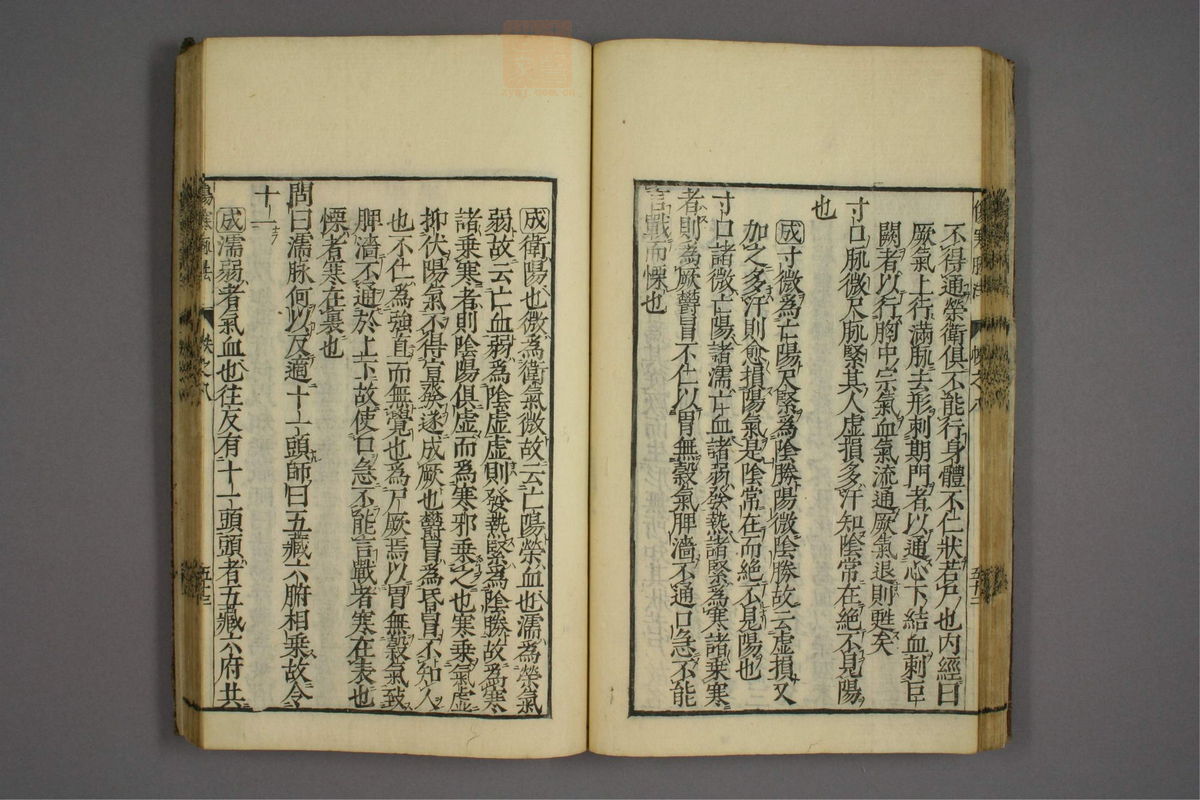 不得通榮衛俱不能行身體不仁狀若尸也內經曰
厥氣上行滿脉去形刺期門者以通心下結血刺巨
闕者以行胸中宗氣血氣流通厥氣退則甦矣
寸口脉微尺脉緊其人虛損多汗知陰常在絕不見陽
也
成寸微為亡陽尺緊為陰勝陽微陰勝故云虛損又
加之多汗則愈損陽氣是陰常在而絕不見陽也
寸口諸微亡陽諸濡亡血諸弱發熱諸緊為寒諸乗寒
者則為厥鬱冒不仁以胃無穀氣脾濇不通口急不能
言戰而慄也
成衛陽也微為衛氣微故云亡陽榮血也濡為榮氣
弱故云亡血弱為陰虛虛則發熱緊為陰勝故為寒
諸乗寒者則陰陽俱虛而為寒邪乗之也寒乗氣虛
抑伏陽氣不得宣發遂成厥也鬱冒為昏冒不知人
也不仁為強直而無覺也為尸厥焉以胃無穀氣致
脾濇不通於上下故使口急不能言戰者寒在表也
慄者寒在裏也
問曰濡脉何以反適十一頭師曰五藏六腑相乗故令
十一
成濡弱者氣血也往反有十一頭頭者五藏六府共